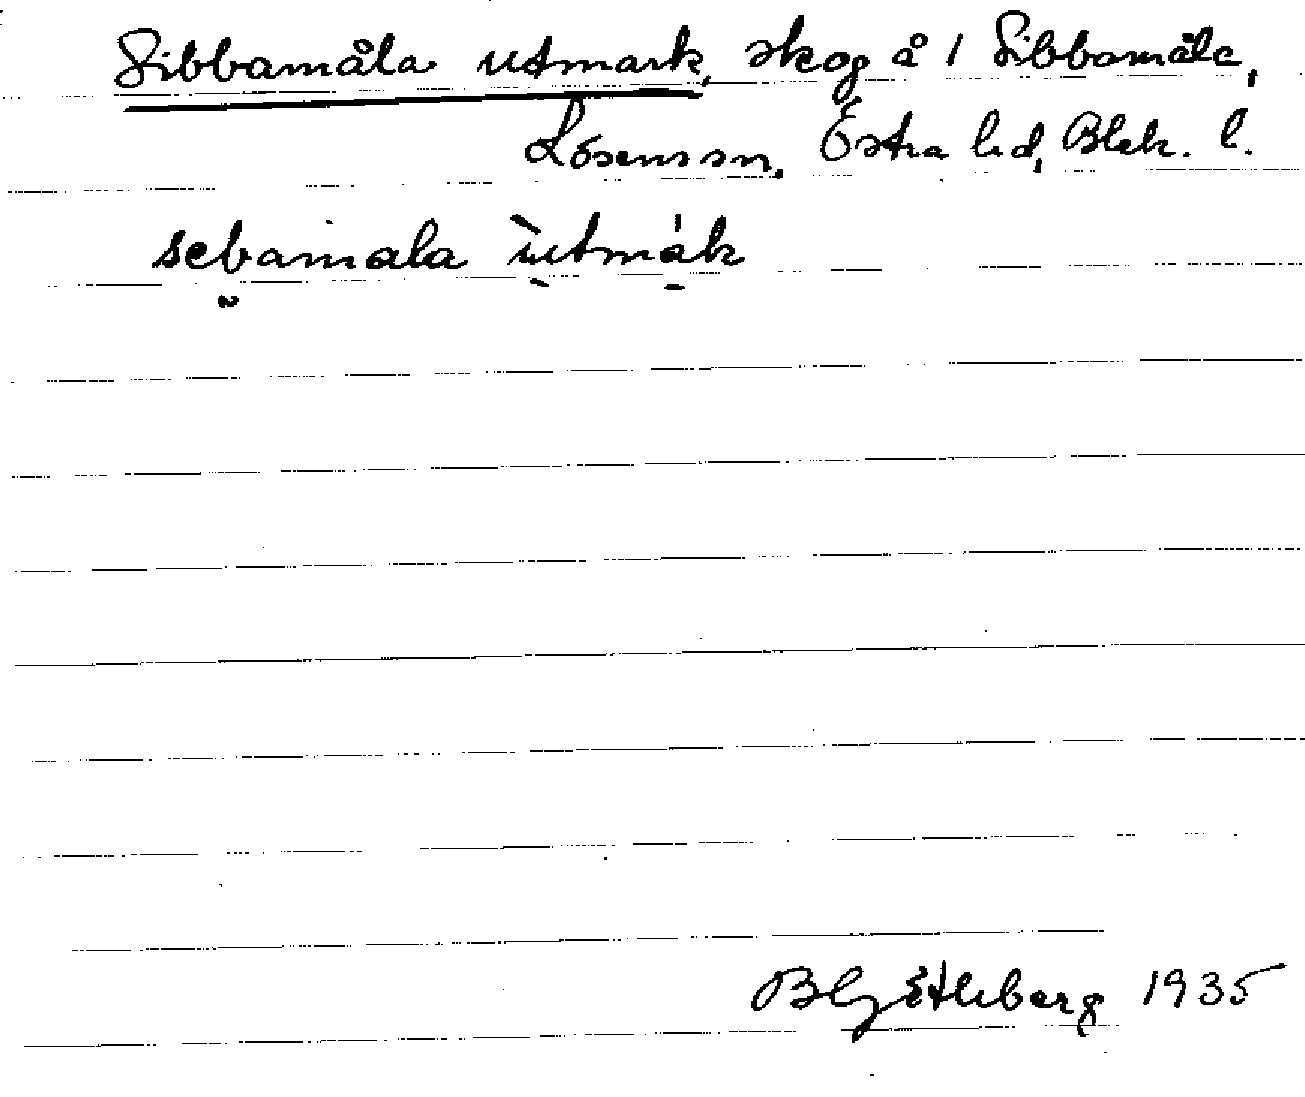 Sibbamåla utmark, skog å 1 Sibbamåla,
Lösens sn, Östra hd, Blek. l.
sebamala ùtmák
1935